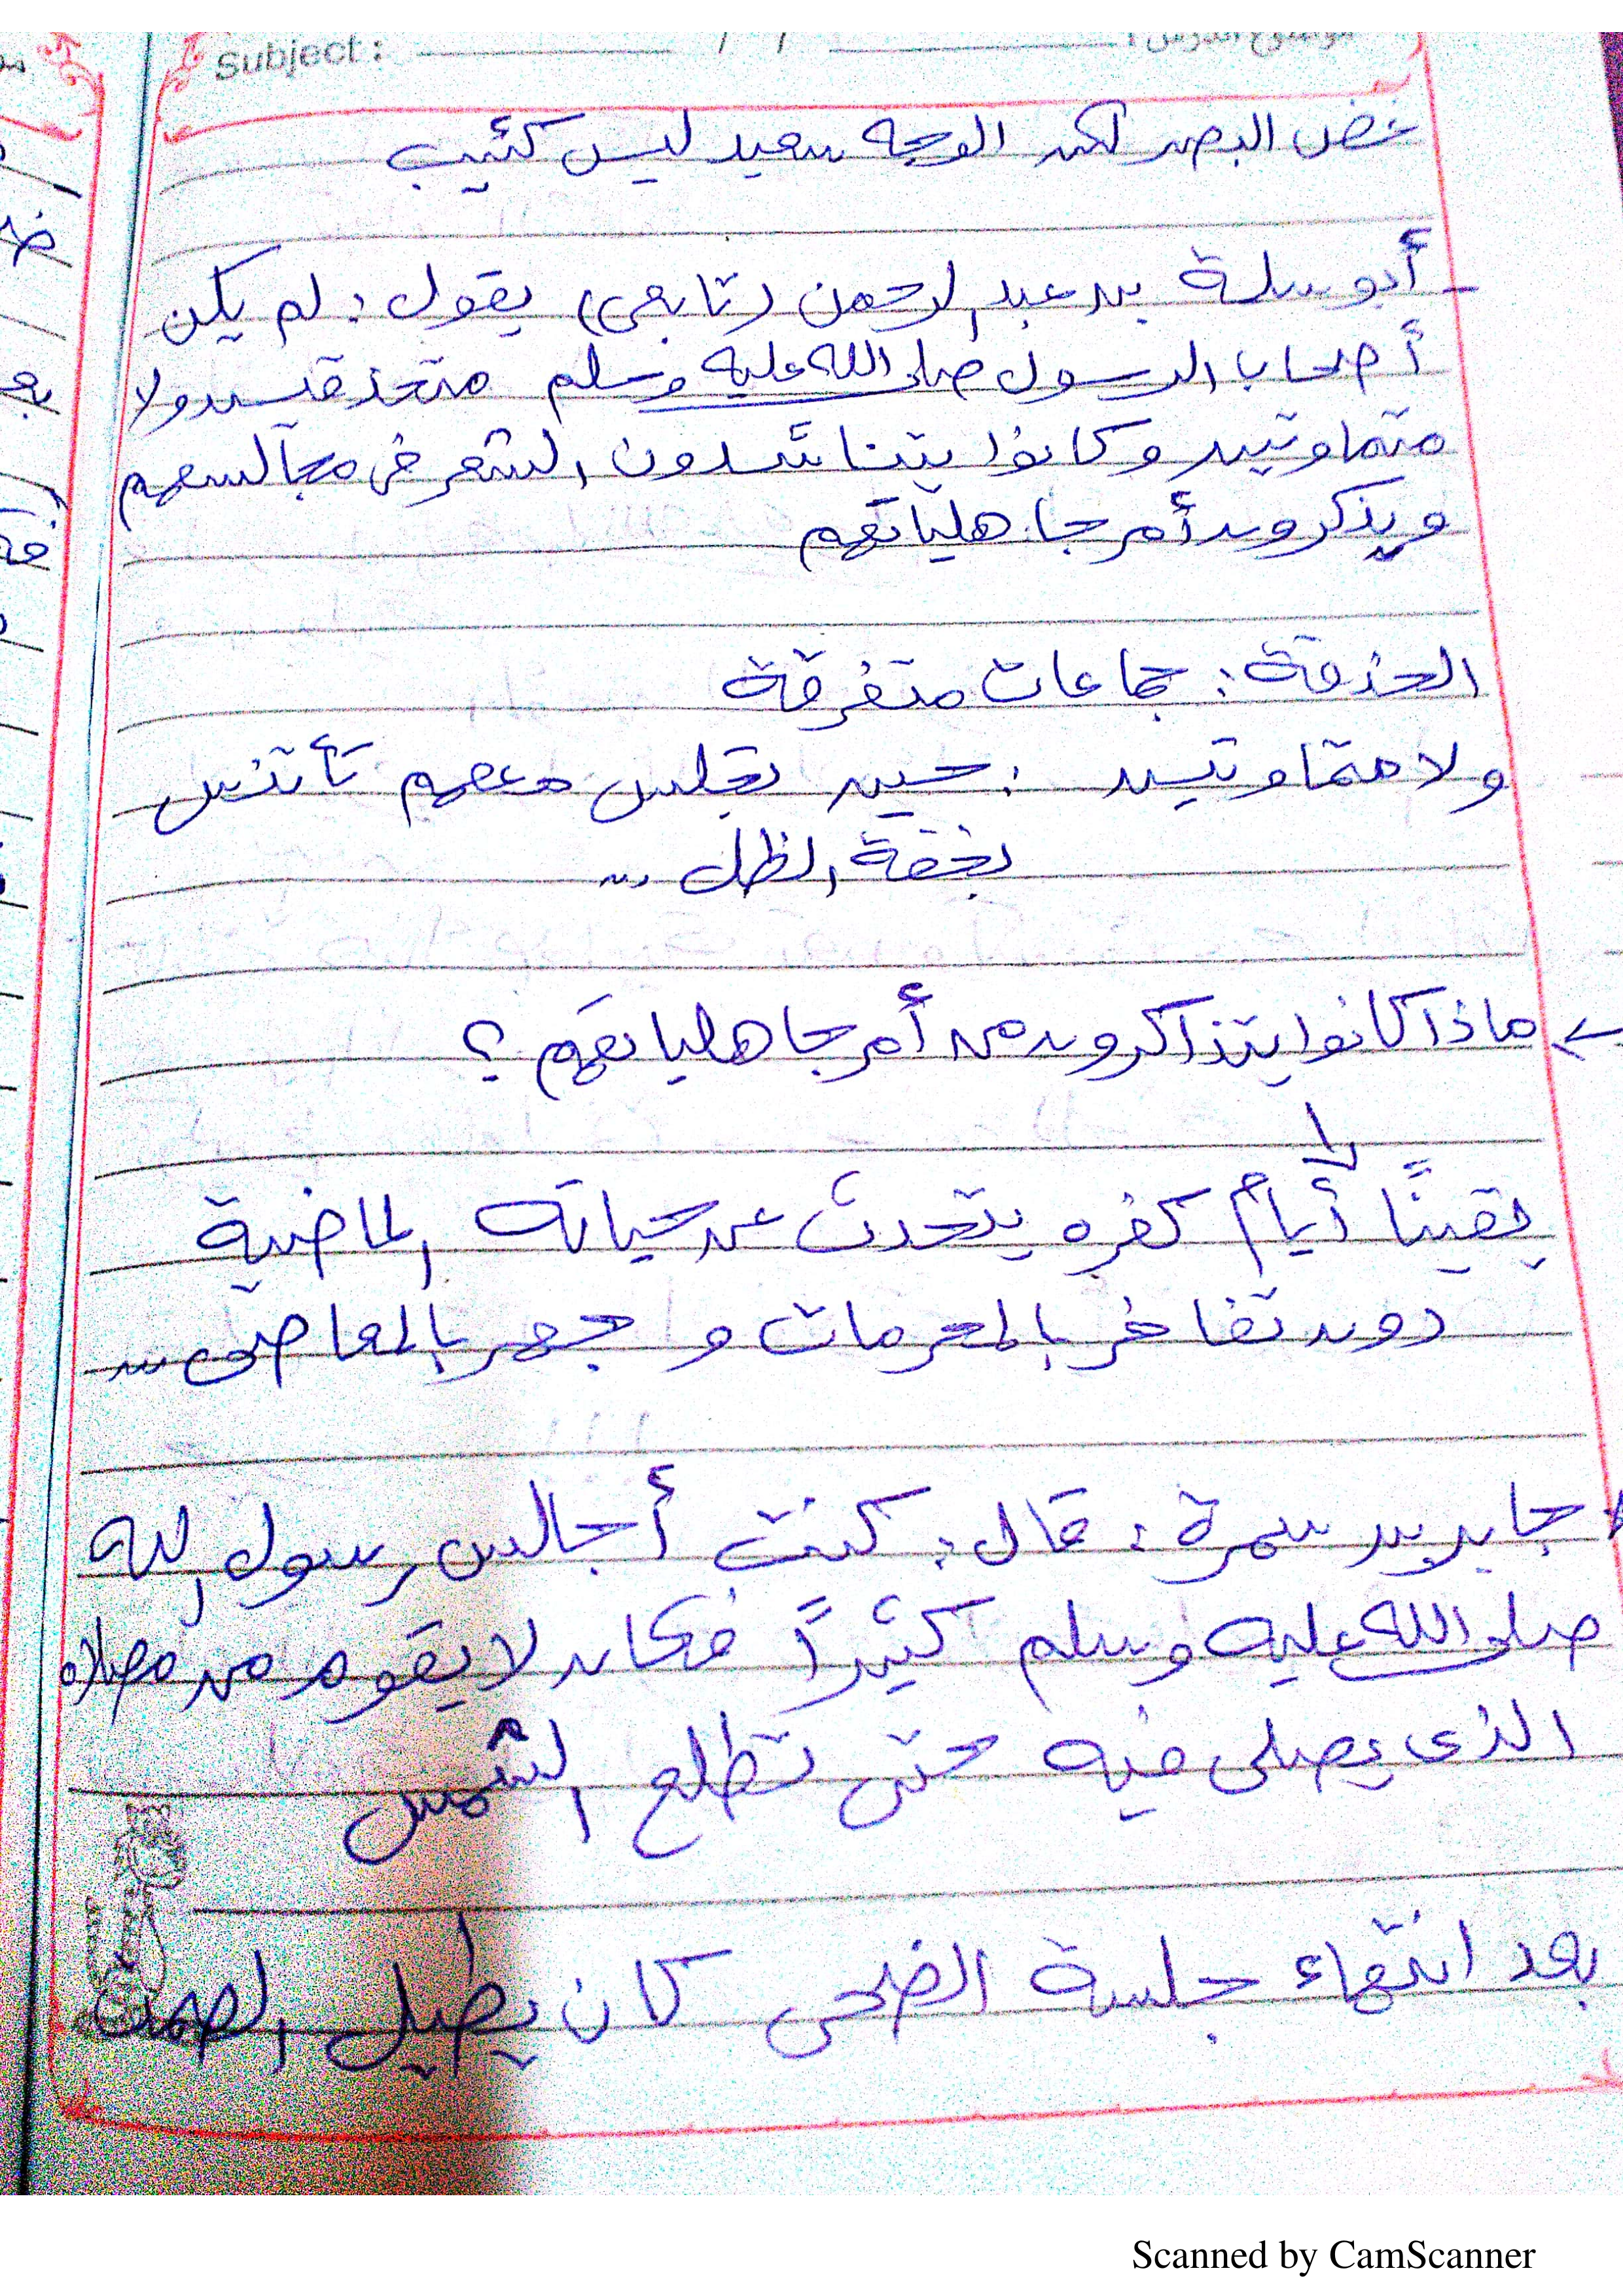 Subject : / / موضوع الدرس :
غض البصر لكن الوجه سعيد ليس كئيب
- أبو سلمة بن عبد الرحمن (تابعى) يقول : لم يكن
أصحاب الرسول صلى الله عليه وسلم متحذقين ولا
متماوتين وكانوا يتناشدون الشعر فى مجالسهم
ويذكرون أمر جاهلياتهم
الحذقة : جماعات متفرقة
ولا متماوتين : حين تجلس معهم تأتنس
بخفة الظل ...
ماذا كانوا يتذاكرون من أمر جاهلياتهم ؟
يقينًا أيام كفره يتحدث عن حياته الماضية
دون تفاخر بالمحرمات و جهر بالمعاصى ...
جابر بن سمرة : قال : كنت أجالس رسول الله
صلى الله عليه وسلم كثيرًا فكان لا يقوم من مصلاه
الذى يصلى فيه حتى تطلع الشمس
بعد انتهاء جلسة الضحى كان يطيل الصمت
Scanned by CamScanner